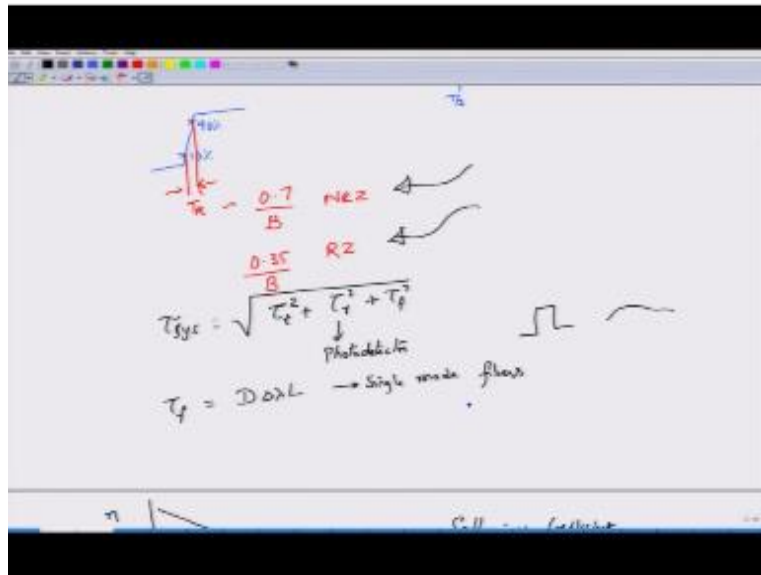 T/2
90%
10%
τR ~ 0.7/B NRZ
0.35/B RZ
τsys = √τt² + τr² + τf²
Photodetector
τf = DΔλL → Single mode fibers
n